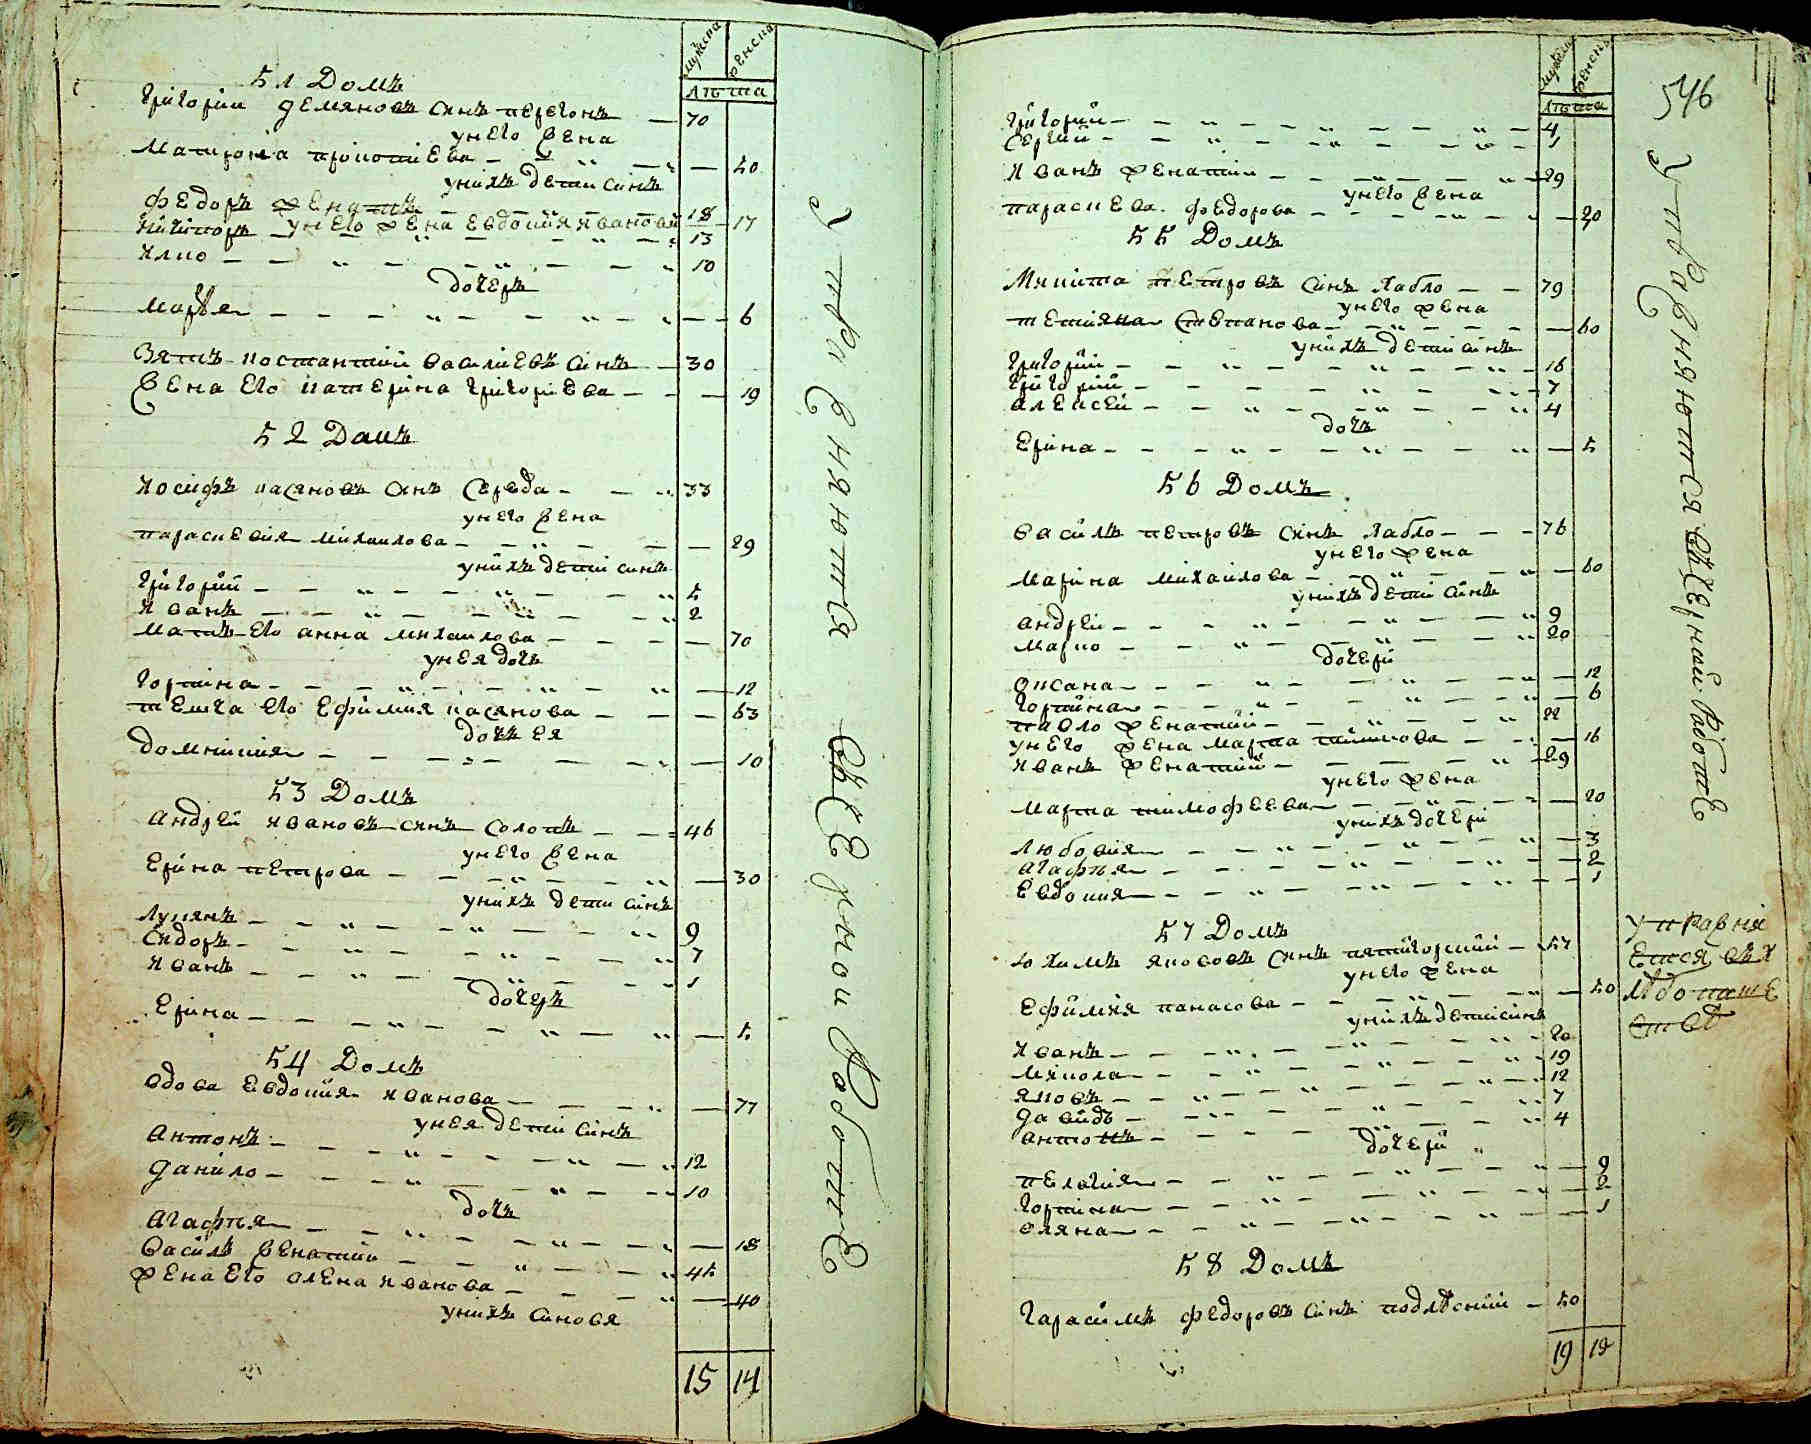 мужеска женска
лѣта
51 Домъ
Григории Демяновъ синъ 70
унего жена
Матрона 40
унихъ дети синъ
Федоръ 18
унего жена Евдокия Иванова 17
13
Илко 10
дочеръ
Марья 6
Зятъ Костантий Василиевъ синъ 30
Жена его Катерина Григориева 19
52 Домъ
Иосифъ Касяновъ синъ Середа 33
унего жена
Параскевия Михаилова 29
унихъ дети сини
Григорий 5
Иванъ 2
Матъ его Анна Михаилова 70
унея дочъ
Горпина 12
теща его Ефимия Касянова 63
дочъ ея
Домникия 10
53 Домъ
Андрей Ивановъ синъ 46
унего жена
Ерина Петрова 30
унихъ дети синъ
Лукянъ 9
Сидоръ 7
Иванъ 1
дочеръ
Ерина 5
54 Домъ
вдова Евдокия Иванова 77
унея дети синъ
Антонъ 12
Данило 10
дочъ
Агафия 18
Василъ женатий 45
жена его Олена Иванова 40
унихъ синовя
15 14
Управляются
546
мужеска женска
лѣта
Григорий 4
Сергий 1
Иванъ женатий 29
унего жена
Параскева Федорова 20
55 Домъ
Микита Петровъ синъ Хабло 79
унего жена
Степанова 60
унихъ дети синъ
Григорий 16
Григорий 7
Алексей 4
дочъ
Ерина 5
56 Домъ
Василъ Петровъ синъ Хабло 76
унего жена
Марина Михаилова 60
унихъ дети синъ
Андрей 9
Марко 20
дочери
Оксана 12
Горпина 6
Павло женатий 22
унего жена Марта 16
Иванъ женатий 29
унего жена
Марта Тимофеева 20
унихъ дочери
Любовия 3
Агафия 2
Евдокия 1
57 Домъ
Юхимъ Якововъ синъ Пятигорский 57
унего жена
Ефимия Панасова 50
унихъ дети сини
Иванъ 20
Микола 19
Яковъ 12
Давидъ 7
Антонъ 4
дочери
Пелагия 9
Горпина 2
Оляна 1
58 Домъ
Гарасимъ Федоровъ синъ Подлѣсний 50
19 19
Управляются